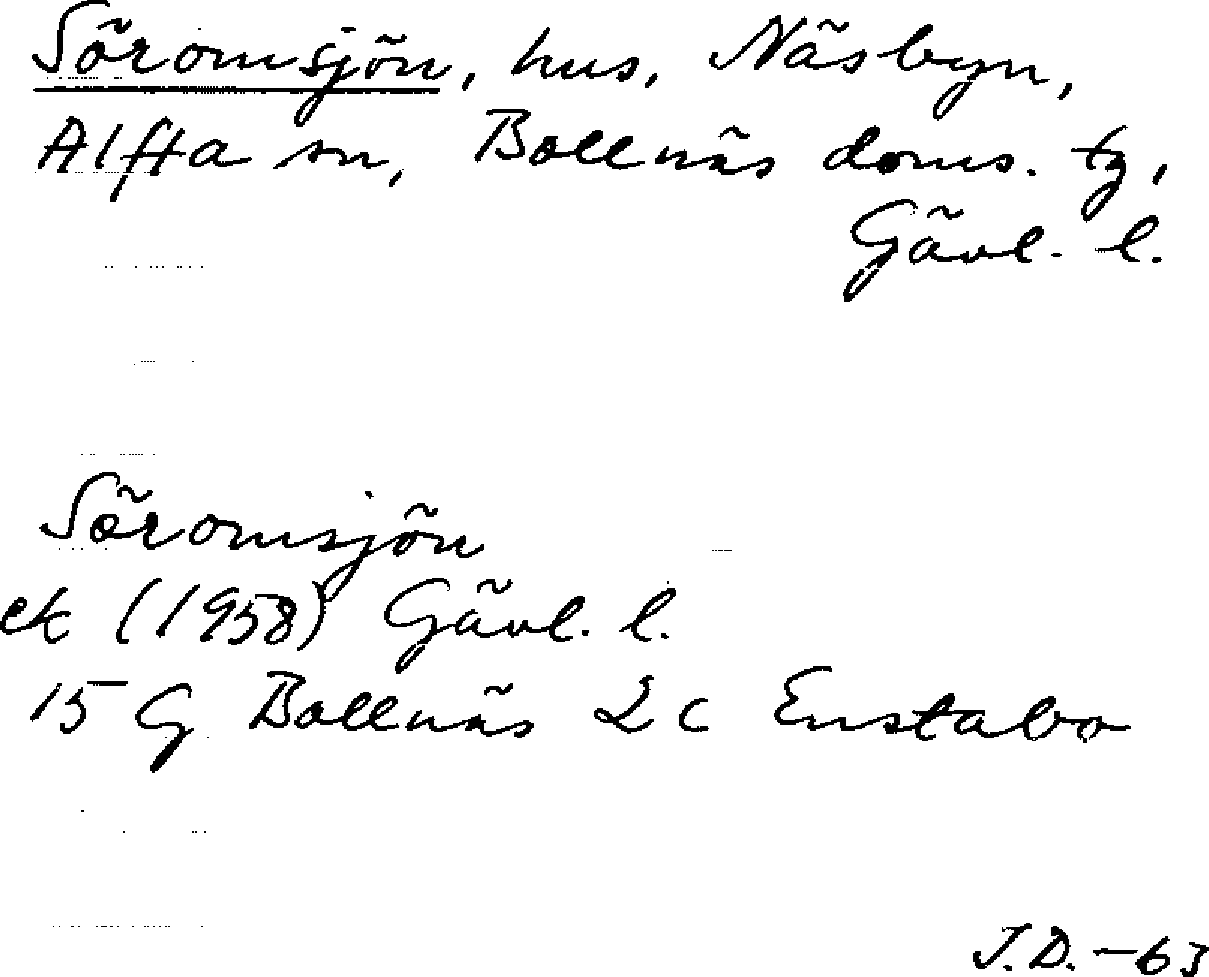 Söromsjön, hus, Näsbyn,
Alfta sn, Bollnäs doms. tg,
Gävl. l.
Söromsjön
ek (1958) Gävl. l.
15 G Bollnäs 2 c Enstabo
J.D. -63